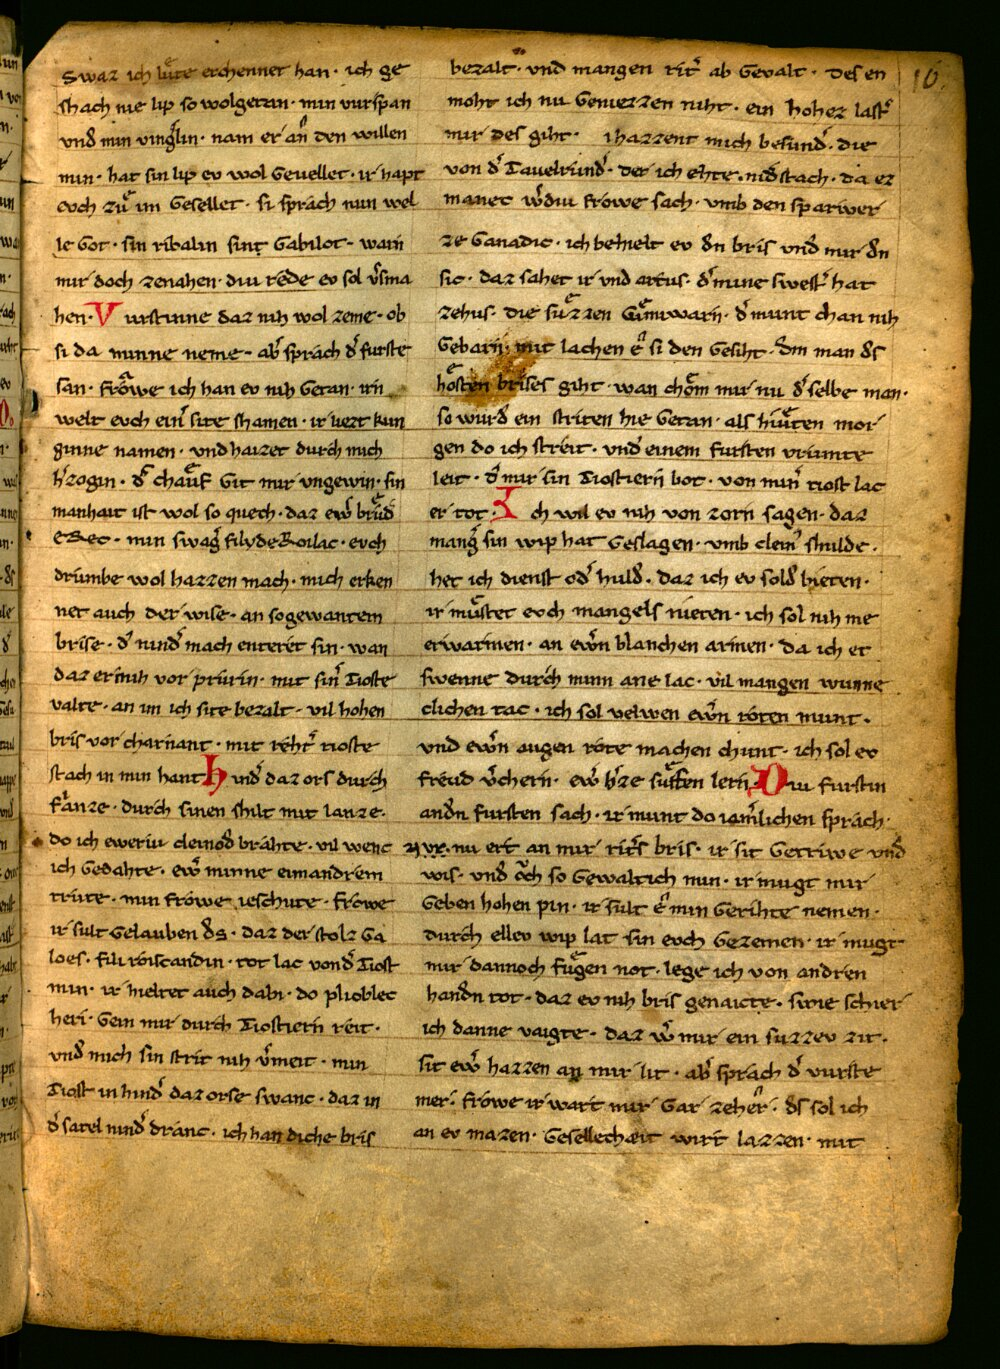 16.
Swaz ich lvͤte erchennet han · ich ge
shach nie lip so wolgetan · min vurspan
vnd̕ min ving̕lin · nam er an̕ den willen
min · hat sin lip ev wol gevellet · ir hapt
evch zvͤ im gesellet · si sprach nun wel
le got · sin ribalin sint gabilot · warn
mir doch zenahen · div rede ev sol v̕sma
hen · Vvrstinne daz nih wol zeme · ob
si da minne neme · ab̕ sprach d̕ furste
san · froͮwe ich han ev nih getan · irn
welt evch ein̕ site shamen · ir liezt kun
ginne namen · vnd haizet durch mich
h̕zogin · d̕ chauf git mir vngewin · sin
manhait ist wol so quech · daz ew̕ brvͦd̕
erec · min swag̕ fily de roilac · evch
drumbe wol hazzen mach · mich erken
net auch der wise · an sogewantem
brise · d̕ nind̕ mach enteret sin · wan
daz er mih vor prurin · mit sin̕ tioste
valte · an im ich site bezalt · vil hohen
bris vor charnant · mit reht̕ tioste
stach in min hant Hind̕ daz ors durch
fianze · durch sinen shilt mit lanze ·
do ich eweriu cleinod̕ brahte · vil wenc
ich gedahte · ew̕ minne eim andrem
trute · min frowe ieschute · frowe
ir sult gelauben d̕s · daz der stolz ga
loes · fili roiscandin · tot lac vond̕ tiost
min · ir hieltet auch dabi · do plioblec
heri · gein mir durch tiostiern reit ·
vnd̕ mich sin strit nih v̕meit · min
tiost in hind̕ daz orse swanc · daz in
d̕ satel nind̕ dranc · ich han diche bris
bezalt · vnd mangen rit̕ ab gevalt · des en
moht ich nu geniezzen niht · ein hohez last̕
mir des giht · ihazzent mich besund̕ · die
von d̕ tauelrund̕ · der ich ehte nid̕stach · da ez
manec w̕div frowe sach · vmb den spariwer
ze ganadic · ich behielt ev d̕n bris vnd̕ mir d̕n
sic · daz sahet ir vnd artus · d̕ mine swest̕ hat
zehus · die suͤzzen Gunwarn · d̕ munt chan nih
gebarn · mit lachen e̕ si den gesiht · dem man d̕s
hoͤsten brises giht · wan choͤm mir nu d̕ selbe man ·
so wurd̕ ein striten hie getan · als hiuten mor
gen do ich streit · vnd̕ einem fursten vriumte
leit · d̕ mir sin tiostiern bot · von min̕ tiost lac
er tot · Ich wil ev nih von zorn sagen · daz
mang̕ sin wip hat geslagen · vmb clein̕ shulde ·
het ich dienst od̕ huld̕ · daz ich ev sold̕ bieten ·
ir muͤstet evch mangels nieten · ich sol nih me
erwarmen · an ew̕n blanchen armen · da ich et
swenne durch minn ane lac · vil mangen wunne
clichen tac · ich sol velwen ew̕n roten munt ·
vnd ew̕n augen rote machen chunt · ich sol ev
freud v̕chern · ew̕ h̕ze suͤften lern · Div furstin
and̕n fursten sach · ir munt do iam̕lichen sprach ·
nu ert an mir rit̕s bris · ir sit getriwe vnd̕
wis · vnd̕ och so gewaltich min · ir mugt mir
geben hohen pin · ir sult e̕ min gerihte nemen ·
durch ellev wip lat sin evch gezemen · ir mugt
mir dannoch fuͤgen not · lege ich von andren
hand̕n tot · daz ev nih bris genaicte · swie schier
ich danne vaigte · daz w̕ mir ein suzzev zit ·
sit ew̕ hazzen an mir lit · ab̕ sprach d̕ vurste
mer · frowe ir wart mir gar zeher · d̕s sol ich
an ev mazen · gesellechæit wirt lazzen · mit